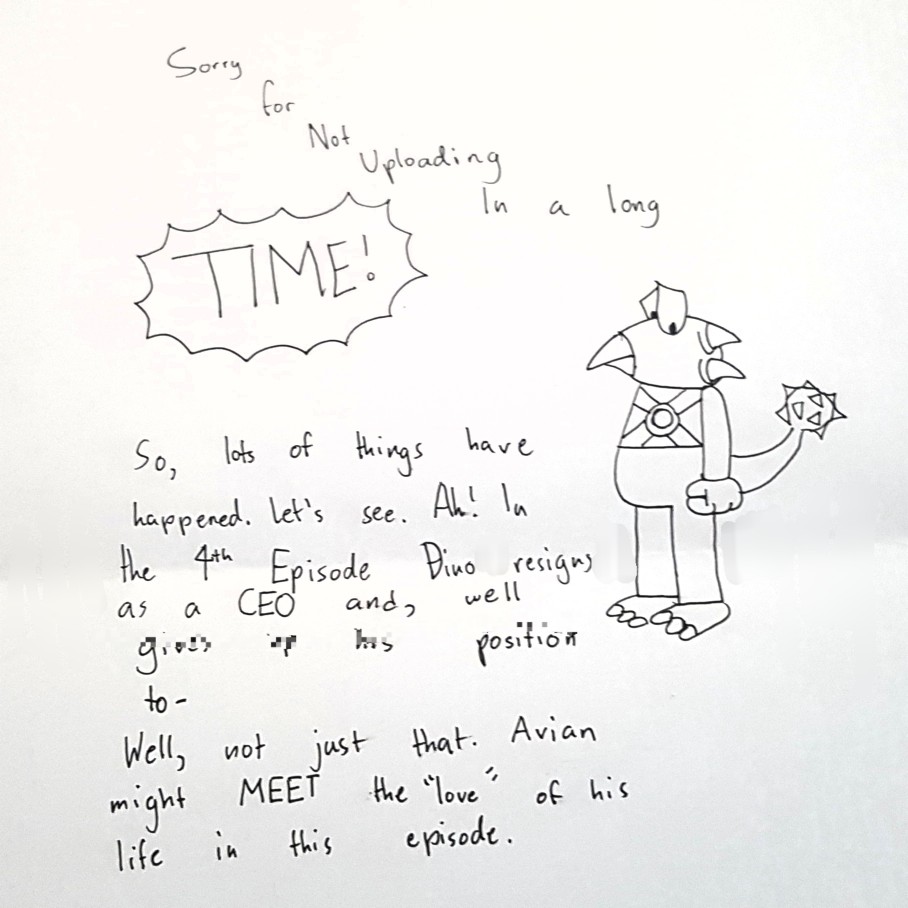 Sorry
for
Not
Uploading
In a long
TIME!
So, lots of things have
happened. Let's see. Ah! In
the 4th Episode Dino resigns
as a CEO and, well
position
to-
Well, not just that. Avian
might MEET the "love" of his
life in this episode.